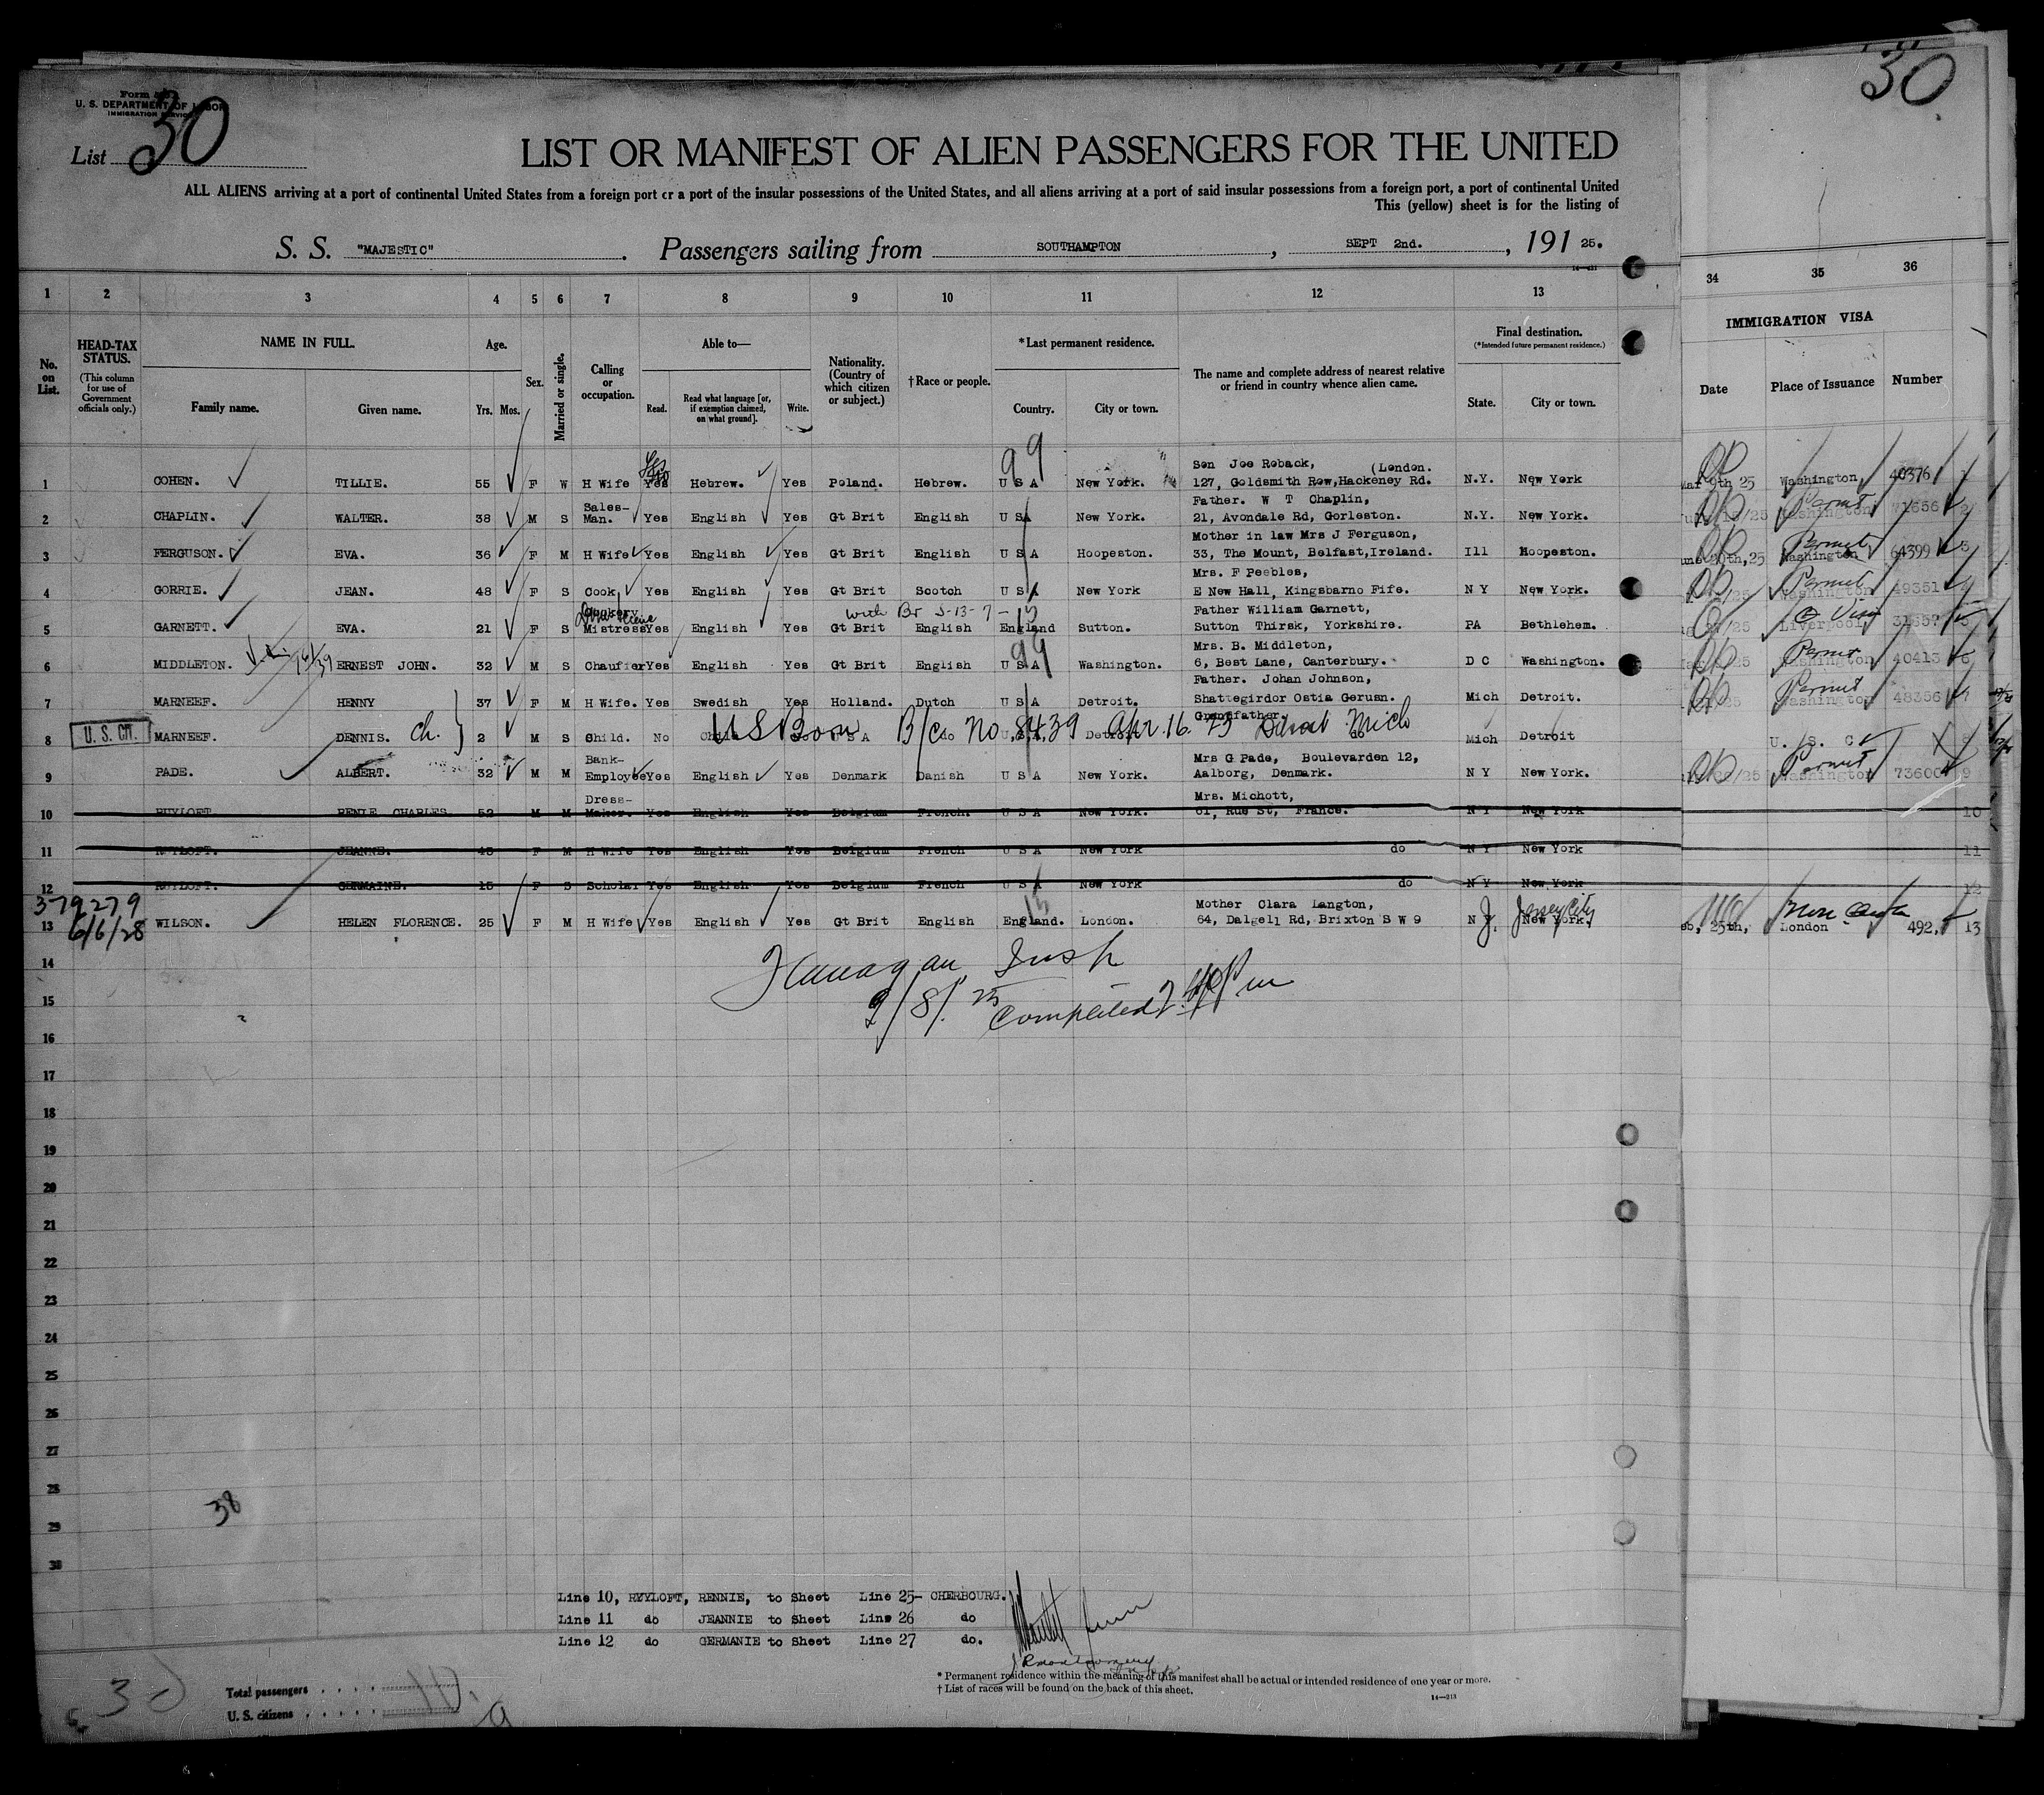 30
Form
U. S. DEPARTMENT OF LABOR
IMMIGRATION SERVICE
List 30
LIST OR MANIFEST OF ALIEN PASSENGERS FOR THE UNITED
ALL ALIENS arriving at a port of continental United States from a foreign port or a port of the insular possessions of the United States, and all aliens arriving at a port of said insular possessions from a foreign port, a port of continental United
This (yellow) sheet is for the listing of
S. S. "MAJESTIC". Passengers sailing from SOUTHAMPTON, SEPT 2nd., 191 25.
1 2 3 4 5 6 7 8 9 10 11 12 13 34 35 36
No. on List.
HEAD-TAX STATUS.
(This column for use of Government officials only.)
NAME IN FULL.
Family name. Given name.
Age.
Yrs. Mos.
Sex.
Married or single.
Calling or occupation.
Able to—
Read. Read what language [or, if exemption claimed, on what ground]. Write.
Nationality. (Country of which citizen or subject.)
† Race or people.
* Last permanent residence.
Country. City or town.
The name and complete address of nearest relative or friend in country whence alien came.
Final destination.
(* Intended future permanent residence.)
State. City or town.
IMMIGRATION VISA
Date Place of Issuance Number
99
Son Joe Roback, (London.
1 COHEN. TILLIE. 55 F W H Wife Yes Hebrew. Yes Poland. Hebrew. U S A New York. 127, Goldsmith Row, Hackeney Rd. N.Y. New York 9th 25 Washington 40376 1
Sales- Father. W T Chaplin,
2 CHAPLIN. WALTER. 38 M S Man. Yes English Yes Gt Brit English U SA New York. 21, Avondale Rd, Gorleston. N.Y. New York. Permit Washington 71656 2
Mother in law Mrs J Ferguson,
3 FERGUSON. EVA. 36 F M H Wife Yes English Yes Gt Brit English U S A Hoopeston. 33, The Mount, Belfast, Ireland. Ill Hoopeston. Permit Washington 64399 3
Mrs. F Peebles,
4 GORRIE. JEAN. 48 F S Cook Yes English Yes Gt Brit Scotch U S A New York E New Hall, Kingsbarno Fife. N Y New York. Permit Washington 49351 4
Cookery with Br 5-13-7- 13 Father William Garnett,
5 GARNETT. EVA. 21 F S Mistress Yes English Yes Gt Brit English England Sutton. Sutton Thirsk, Yorkshire. PA Bethlehem. Liverpool 5
99 Mrs. B. Middleton,
6 MIDDLETON. ERNEST JOHN. 32 M S Chauffer Yes English Yes Gt Brit English U S A Washington. 6, Best Lane, Canterbury. D C Washington. Permit Washington 40413 6
Father. Johan Johnson,
7 MARNEEF. HENNY 37 F M H Wife. Yes Swedish Yes Holland. Dutch U S A Detroit. Shattegirdor Ostia Gerusn. Mich Detroit. Permit Washington 48356 7
Grandfather
8 U.S. CIT. MARNEEF. DENNIS. ch. 2 M S Child. No US Born B/C No. 8439 Apr. 16. 23 Detroit Mich Mich Detroit U. S. C 8
Bank- Mrs G Pade, Boulevarden 12,
9 PADE. ALBERT. 32 M M Employee Yes English Yes Denmark Danish U S A New York. Aalborg, Denmark. N Y New York. Permit Washington 73600 9
Dress- Mrs. Michott,
10 RUYLOFT RENIE CHARLES 52 M M Maker. Yes English Yes Belgium French. U S A New York. 61, Rue St, France. N Y New York 10
11 RUYLOFT. JEANNE. 45 F M H Wife Yes English Yes Belgium French U S A New York do N Y New York 11
12 RUYLOFT. GERMAINE. 15 F S Scholar Yes English Yes Belgium French U S A New York do N Y New York 12
379279 13 Mother Clara Langton, Jersey City
13 6/6/28 WILSON. HELEN FLORENCE. 25 F M H Wife Yes English Yes Gt Brit English England. London. 64, Dalgell Rd, Brixton S W 9 N J. New York. 25th, London 492, 13
14 Flanagan Insp
15 9/8/25 Completed
16
17
18
19
20
21
22
23
24
25
26
27
28
38
29
30
Line 10, RYYLOFT, RENNIE, to Sheet Line 25- CHERBOURG.
Line 11 do JEANNIE to Sheet Line 26 do
Line 12 do GERMANIE to Sheet Line 27 do.
* Permanent residence within the meaning of this manifest shall be actual or intended residence of one year or more.
† List of races will be found on the back of this sheet.
14—213
Total passengers
U. S. citizens